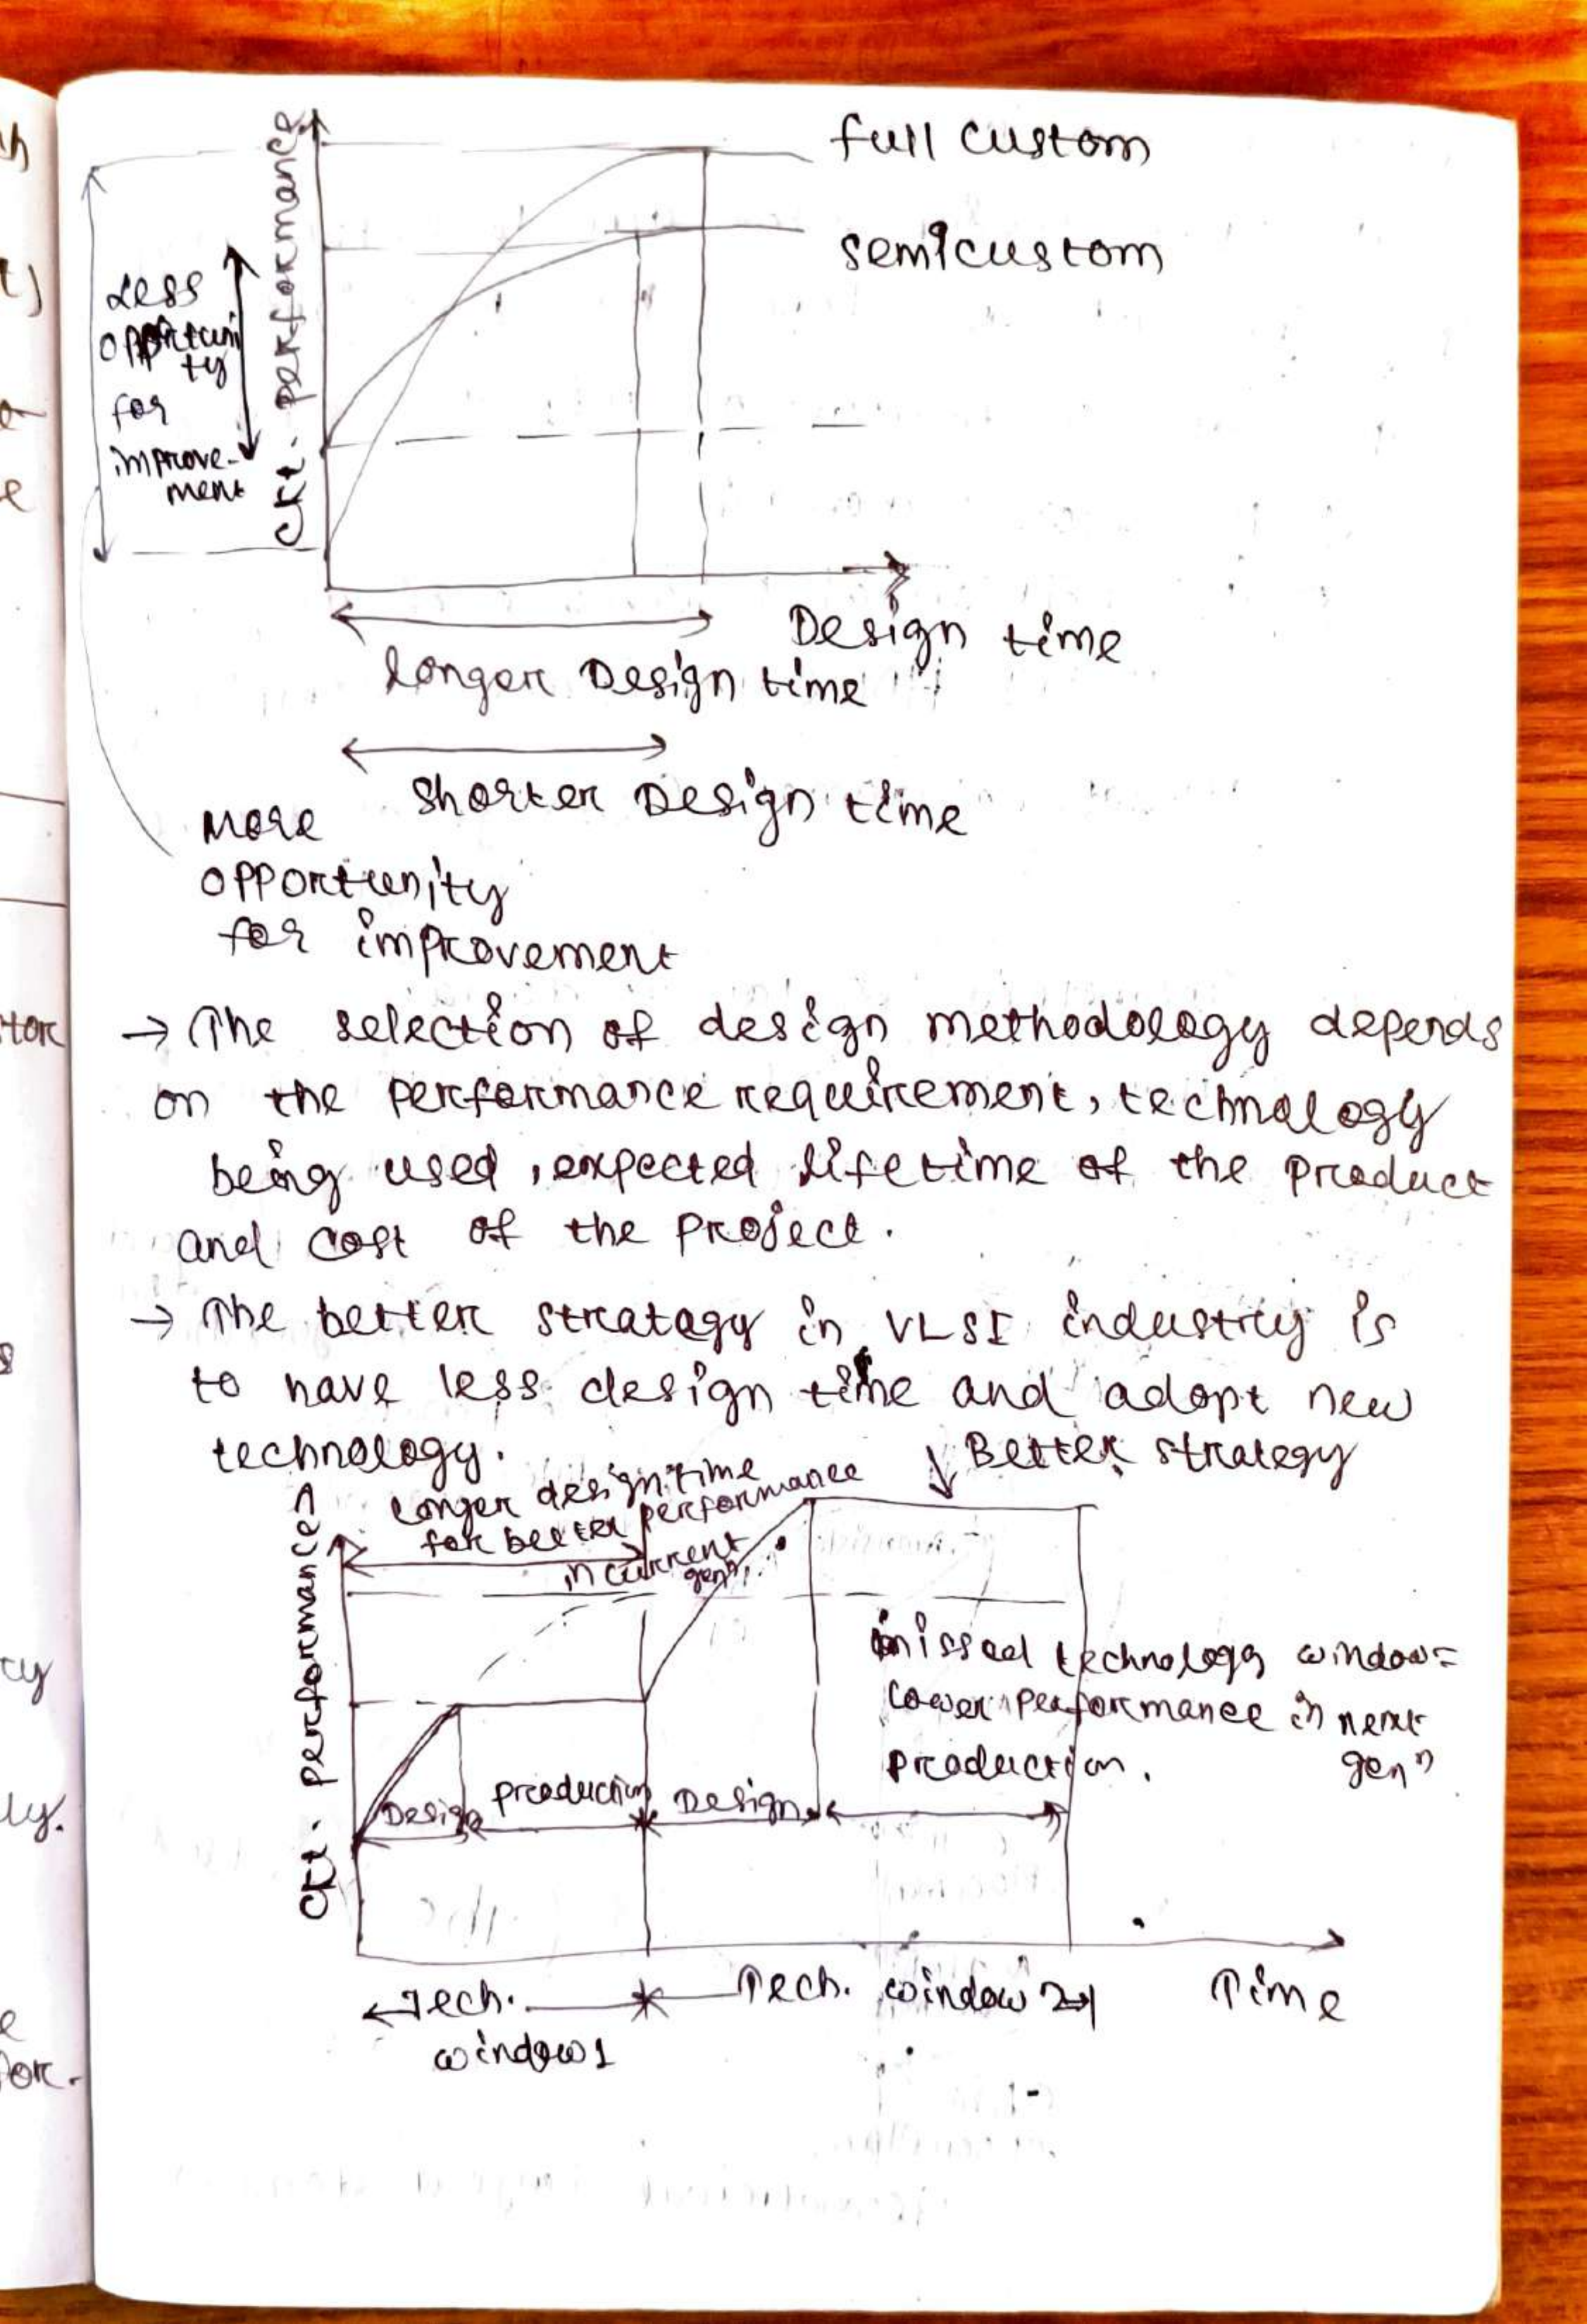 full custom
semicustom
Ckt. performance
Less
opportuni
ty
for
improve-
ment
Design time
longer Design time
shorter Design time
More
opportunity
for improvement
→ The selection of design methodology depends
on the performance requirement, technology
being used, expected lifetime of the product
and cost of the project.
→ The better stratagy in VLSI industry is
to have less design time and adopt new
technology.
↓ Better strategy
Longer design time
for better performance
in current
genⁿ.
Ckt. performance
missed technology window=
Lower performance in next
production. genⁿ
Design
production
Design
Tech.
window 1
Tech. window 2
Time
tor
cy
ly.
for.